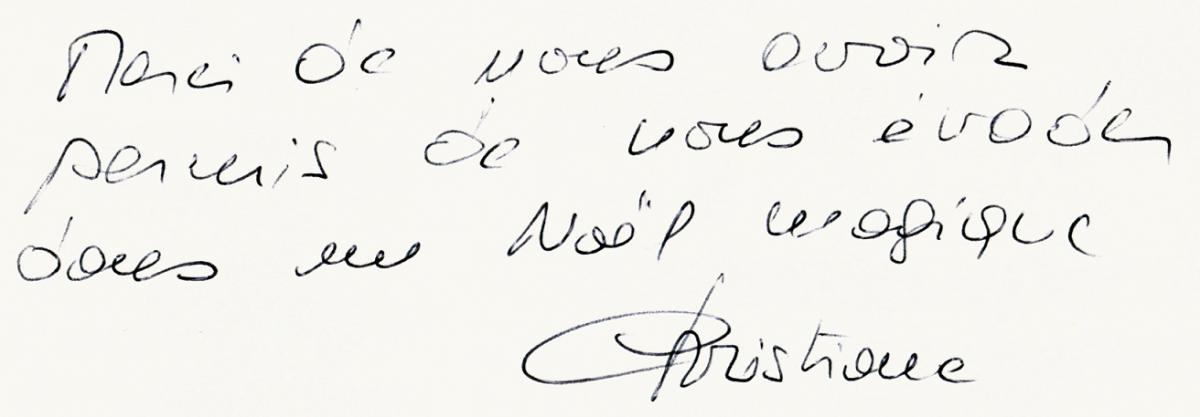 Merci de nous avoir
permis de nous évader
dans un Noël magique
Christiane